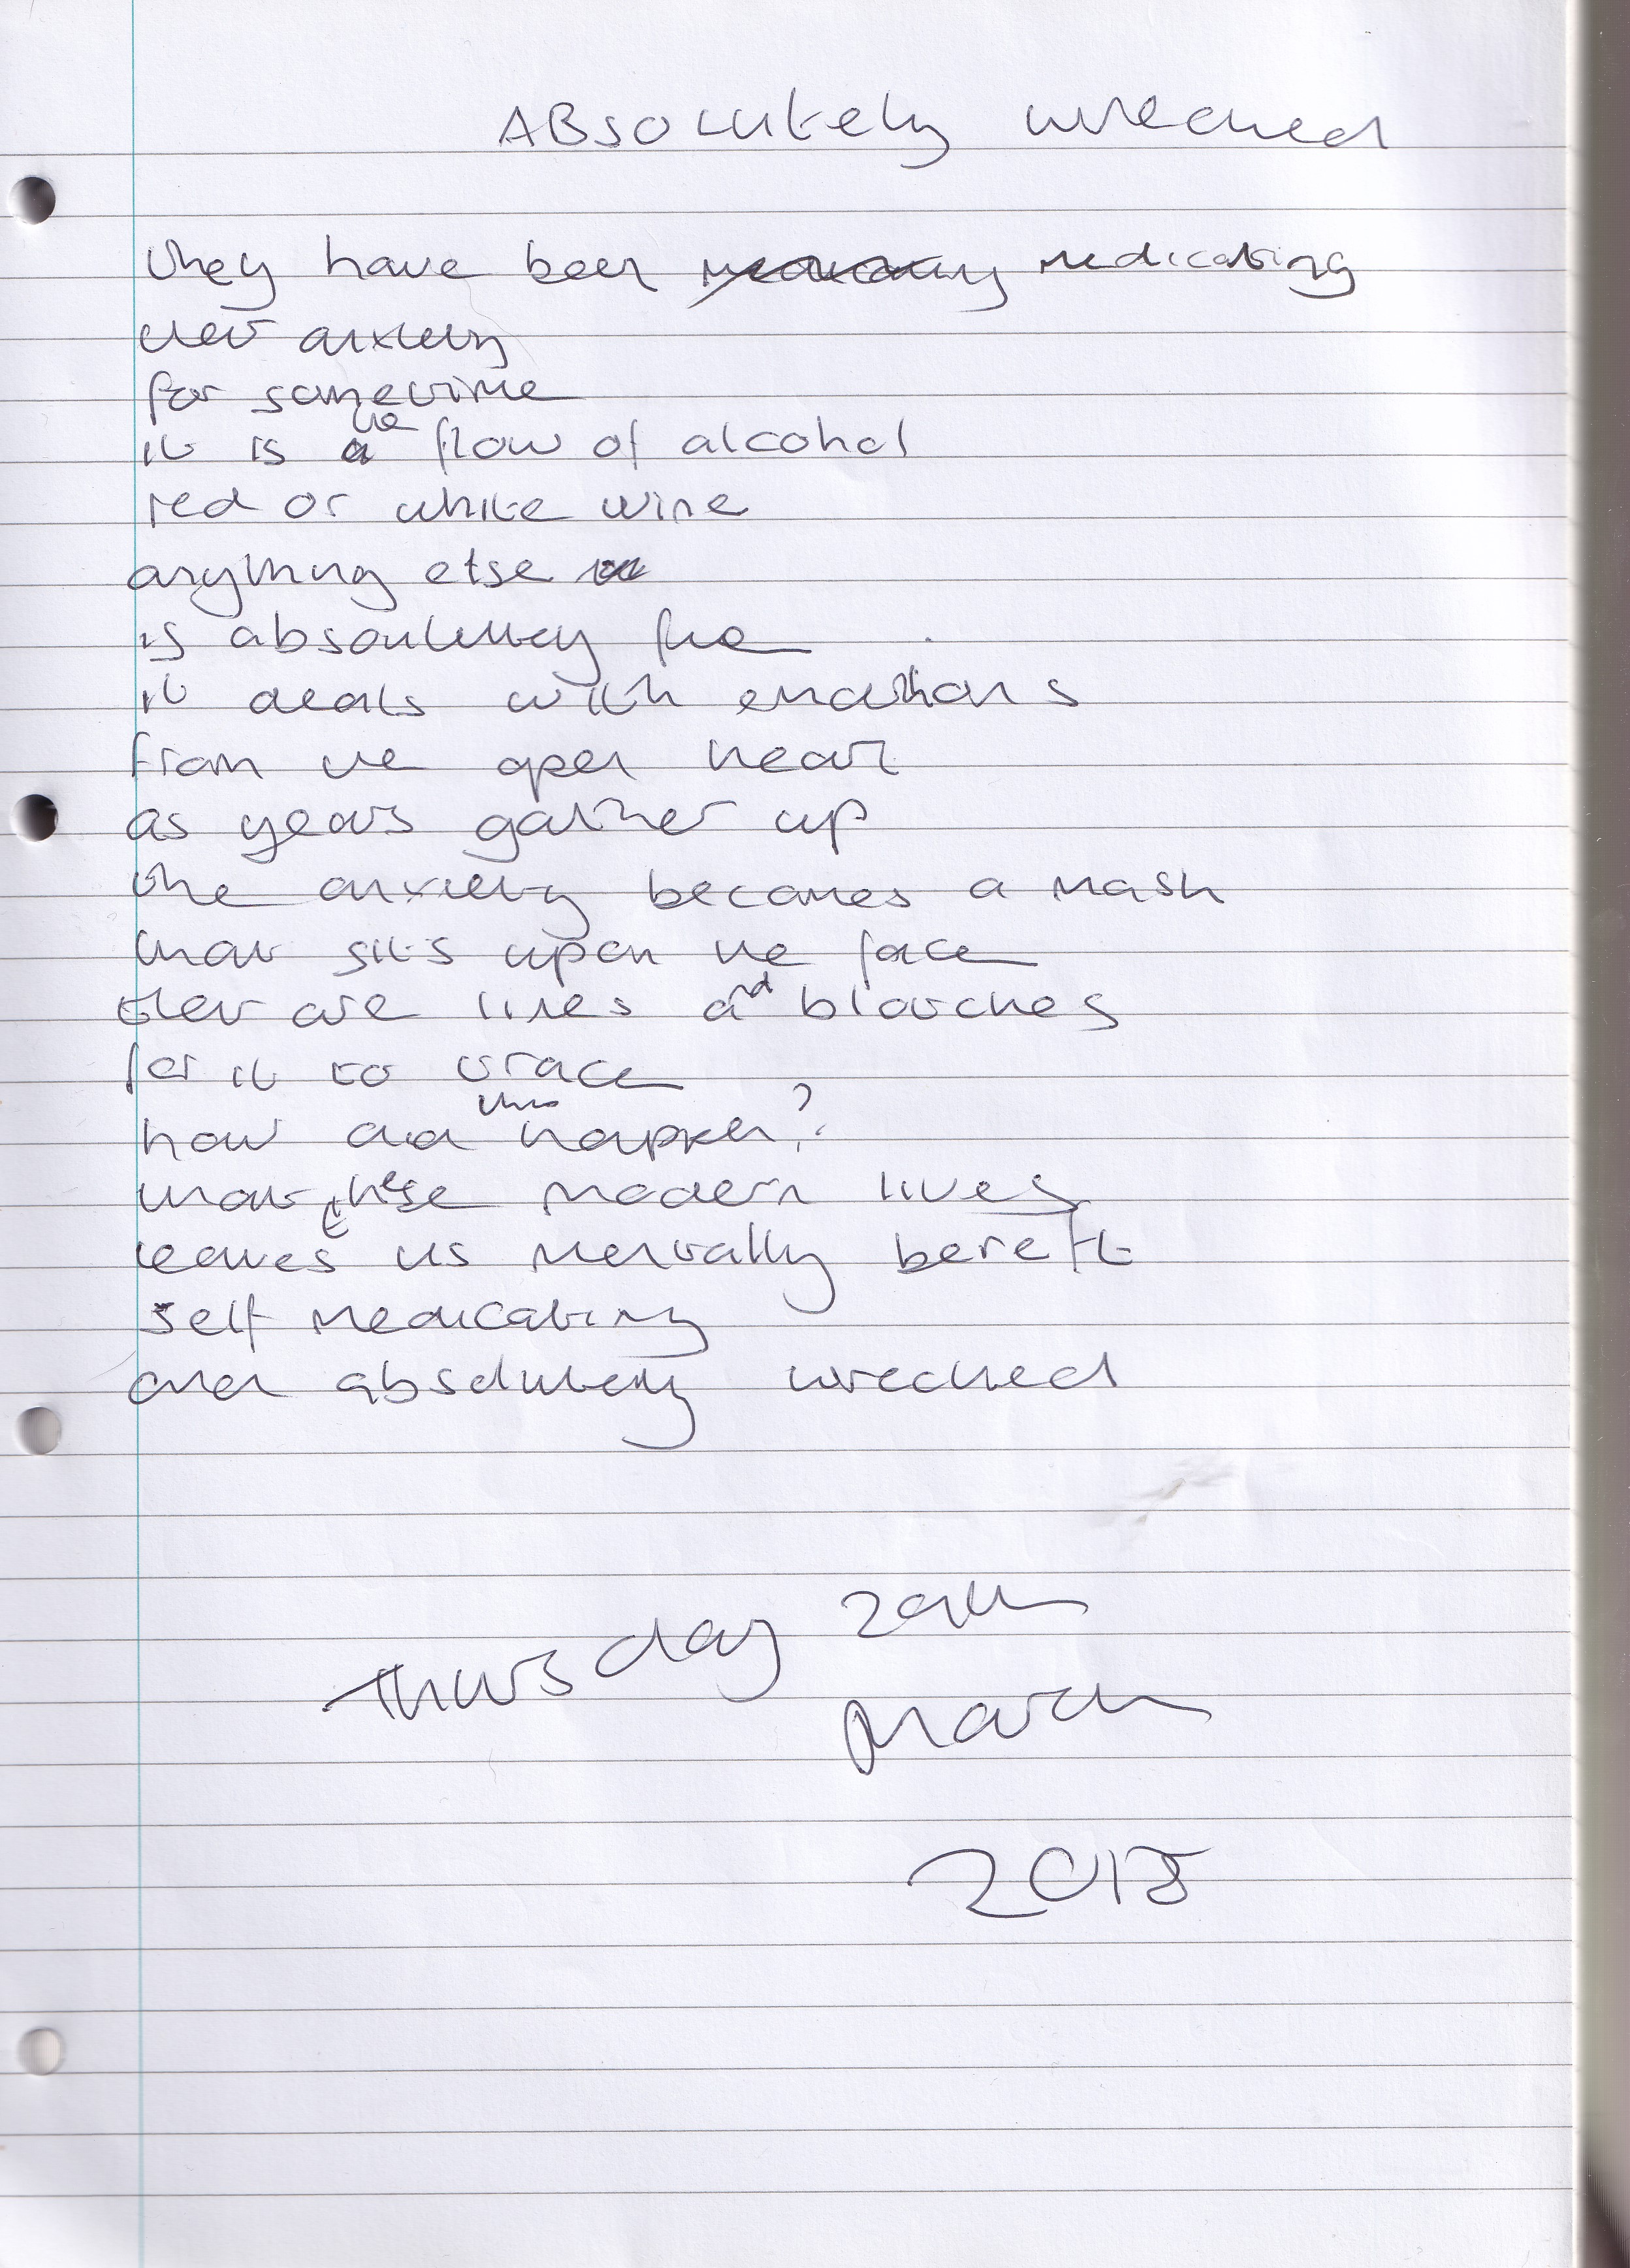 ABsolutely wrecked
they have been medicating
their anxiety
for sometime
it is the flow of alcohol
red or white wine
anything else
is absolutely fine
it deals with emotions
from the open heart
as years gather up
the anxiety becomes a mask
that sits upon the face
their are lines and blotches
for it to trace
how did this happen?
that these modern lives
leaves us mentally bereft
self medicating
and absolutely wrecked
Thursday 29th
March
2018